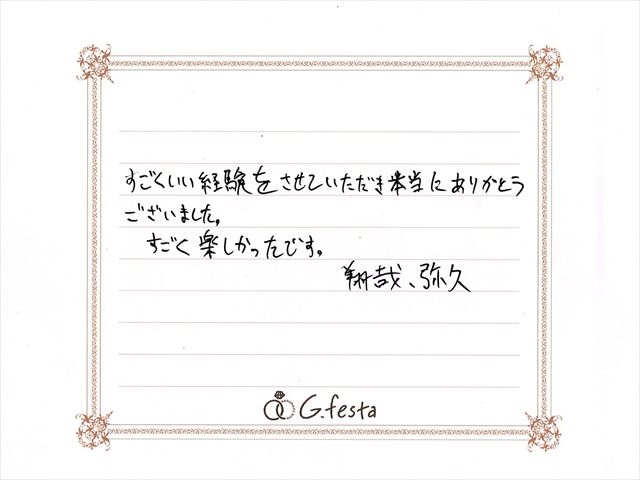 すごくいい経験をさせていただき本当にありがとう
ございました。
すごく楽しかったです。
翔哉、弥久
G.festa